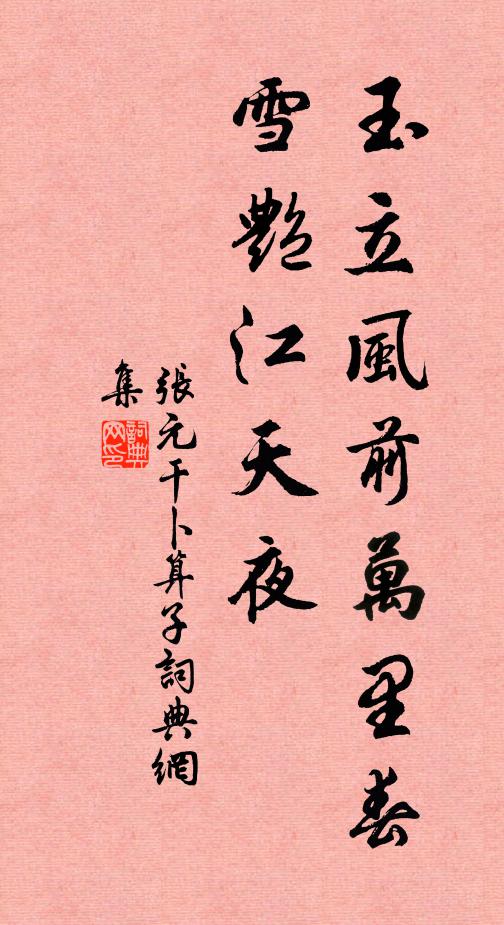 玉立風前萬里春
雪艷江天夜
張元干卜算子詞典網
集
詞典網印